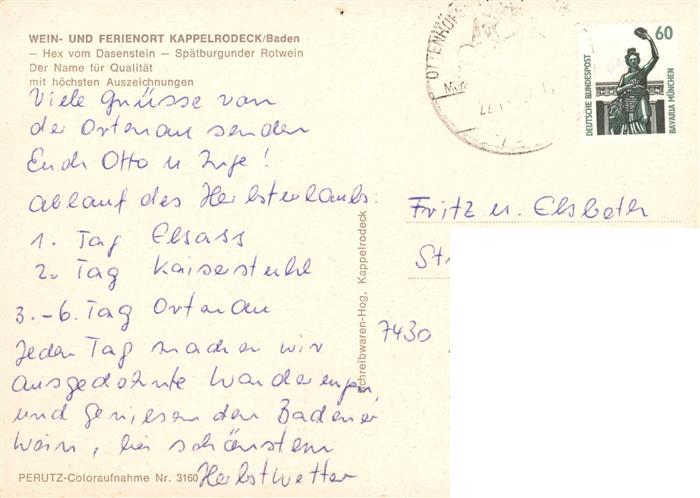 WEIN- UND FERIENORT KAPPELRODECK/Baden
– Hex vom Dasenstein – Spätburgunder Rotwein
Der Name für Qualität
mit höchsten Auszeichnungen
Viele Grüsse von
der Ortenau senden
Euch Otto u Inge!
Ablauf des Herbsturlaubs:
1. Tag Elsass
2. Tag Kaiserstuhl
3.-6. Tag Ortenau
Jeden Tag machen wir
ausgedehnte Wanderungen
und geniesen den Badener
Wein, bei schönstem
Herbstwetter
PERUTZ-Coloraufnahme Nr. 3160
Schreibwaren-Hog, Kappelrodeck
OTTENHÖF
60
DEUTSCHE BUNDESPOST
BAVARIA MÜNCHEN
Fritz u. Elsbeth
St
7430